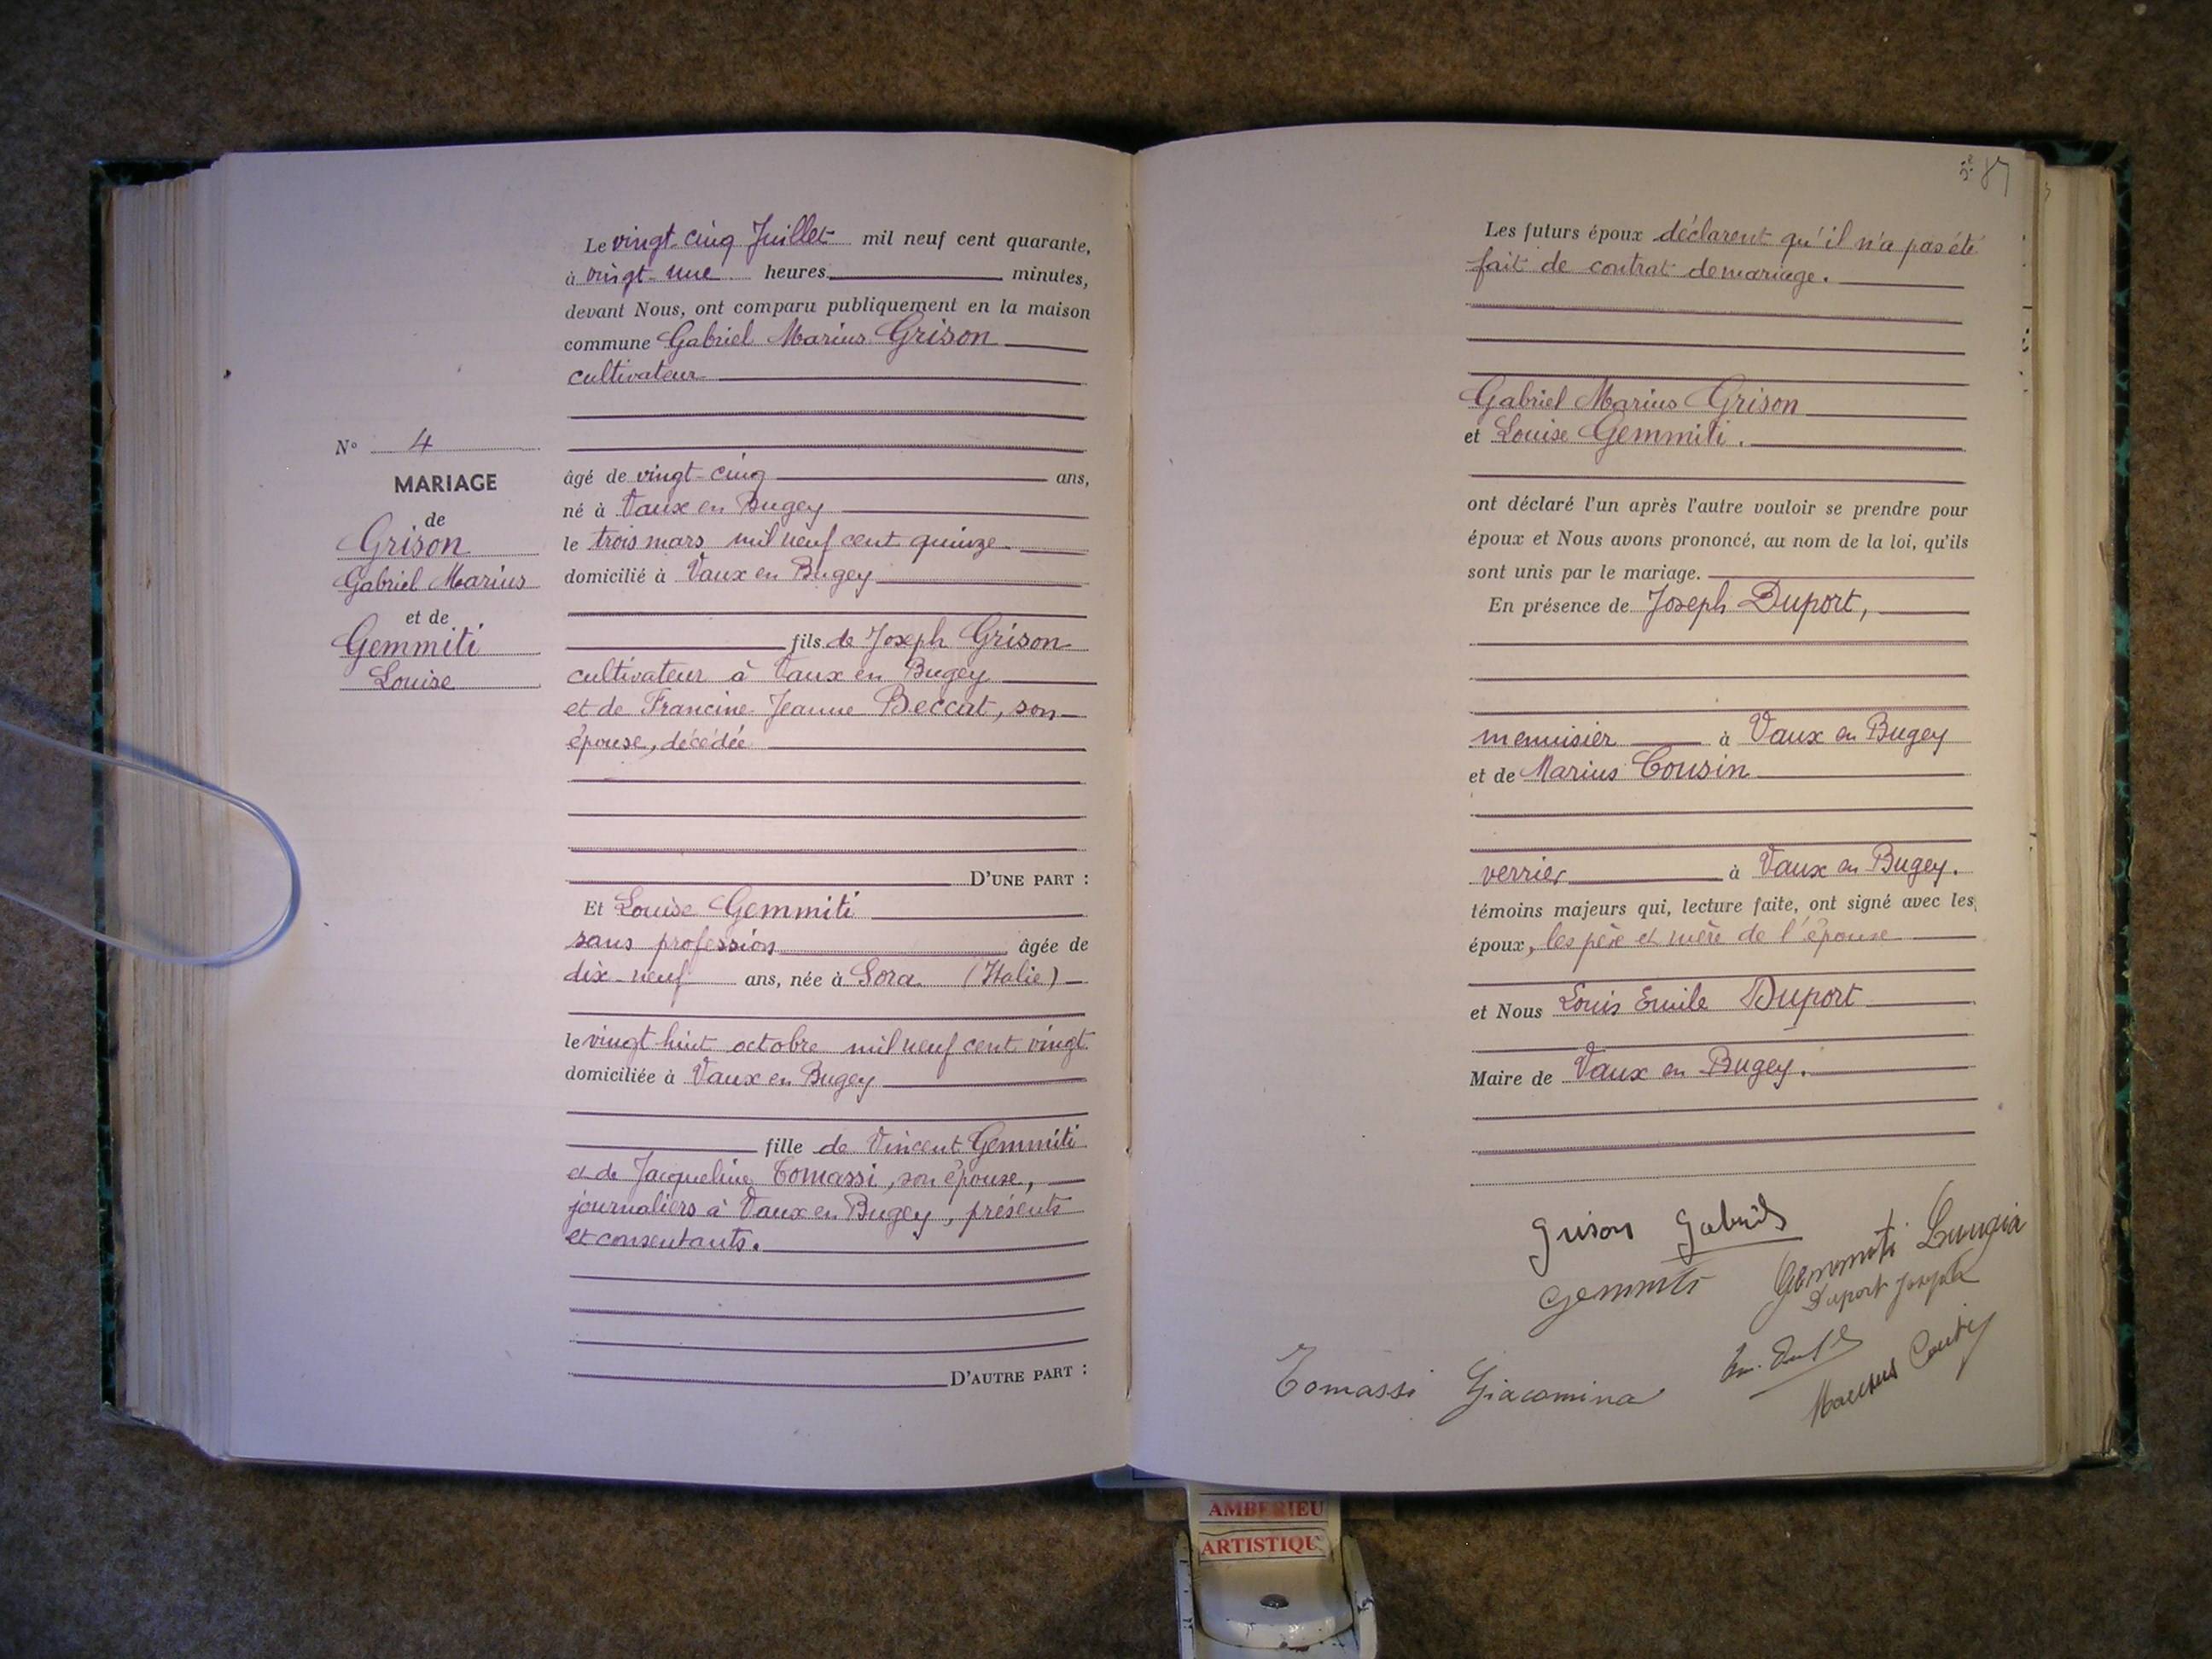 Le vingt-cinq Juillet mil neuf cent quarante,
à vingt-une heures minutes,
devant Nous, ont comparu publiquement en la maison
commune Gabriel Marius Grison
cultivateur
N° 4
MARIAGE
de
Grison
Gabriel Marius
et de
Gemmiti
Louise
âgé de vingt-cinq ans,
né à Vaux en Bugey
le trois mars mil neuf cent quinze
domicilié à Vaux en Bugey
fils de Joseph Grison
cultivateur à Vaux en Bugey
et de Francine Jeanne Beccat, son
épouse, décédée
D'UNE PART :
Et Louise Gemmiti
sans profession âgée de
dix-neuf ans, née à Sora (Italie)
le vingt huit octobre mil neuf cent vingt
domiciliée à Vaux en Bugey
fille de Vincent Gemmiti
et de Jacqueline Tomassi, son épouse,
journaliers à Vaux en Bugey, présents
et consentants.
D'AUTRE PART :
87
Les futurs époux déclarent qu'il n'a pas été
fait de contrat de mariage.
Gabriel Marius Grison
et Louise Gemmiti.
ont déclaré l'un après l'autre vouloir se prendre pour
époux et Nous avons prononcé, au nom de la loi, qu'ils
sont unis par le mariage.
En présence de Joseph Duport,
menuisier à Vaux en Bugey
et de Marius Cousin
verrier à Vaux en Bugey.
témoins majeurs qui, lecture faite, ont signé avec les
époux, les père et mère de l'épouse
et Nous Louis Emile Duport
Maire de Vaux en Bugey.
Grison Gabriel
Gemmiti
Gemmiti
Duport Joseph
Tomassi Giacomina
AMBERIEU
ARTISTIQU